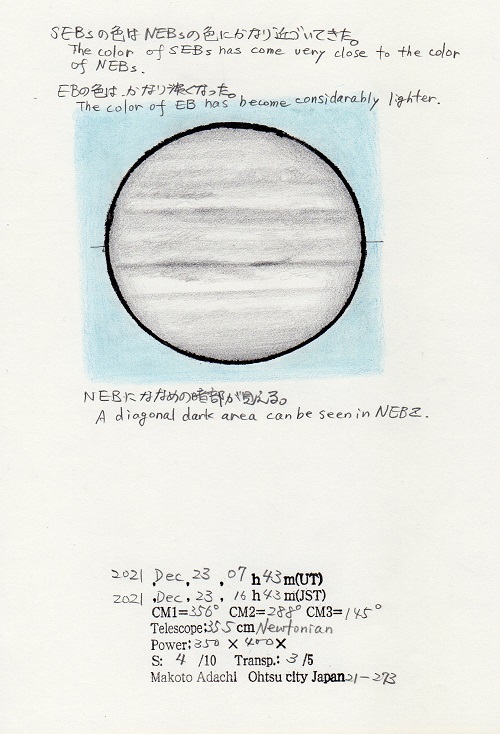 SEBsの色はNEBsの色にかなり近づいてきた。
The color of SEBs has come very close to the color
of NEBs.
EBの色は、かなり淡くなった。
The color of EB has become considarably lighter.
NEBにななめの暗部が見える。
A diagonal dark area can be seen in NEBZ.
2021 Dec, 23, 07 h 43 m(UT)
2021, Dec, 23, 16 h 43 m(JST)
CM1=356° CM2=288° CM3=145°
Telescope:35.5 cm Newtonian
Power:350 × 400×
S: 4 /10 Transp.: 3 /5
Makoto Adachi Ohtsu city Japan 21-273